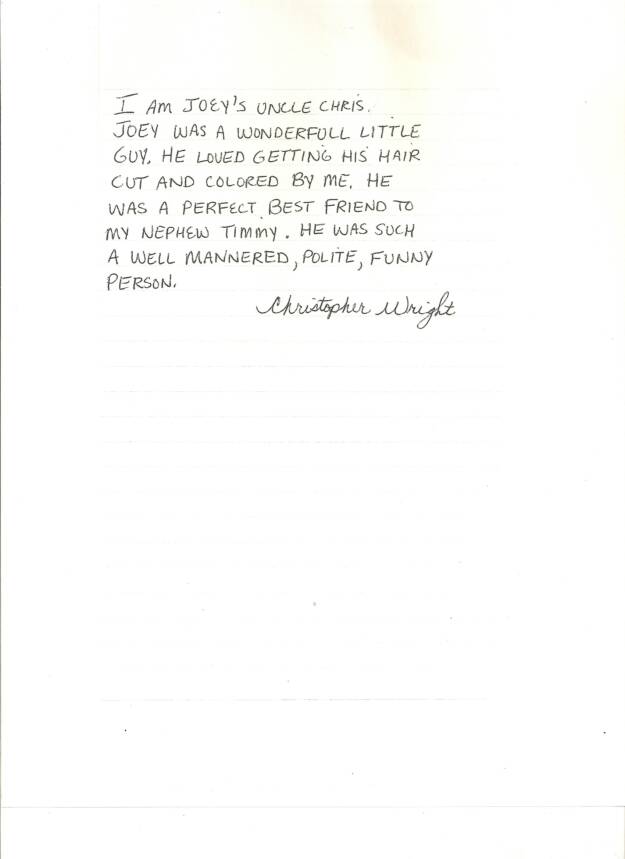 I AM JOEY'S UNCLE CHRIS.
JOEY WAS A WONDERFULL LITTLE
GUY. HE LOVED GETTING HIS HAIR
CUT AND COLORED BY ME. HE
WAS A PERFECT BEST FRIEND TO
MY NEPHEW TIMMY. HE WAS SUCH
A WELL MANNERED, POLITE, FUNNY
PERSON.
Christopher Wright